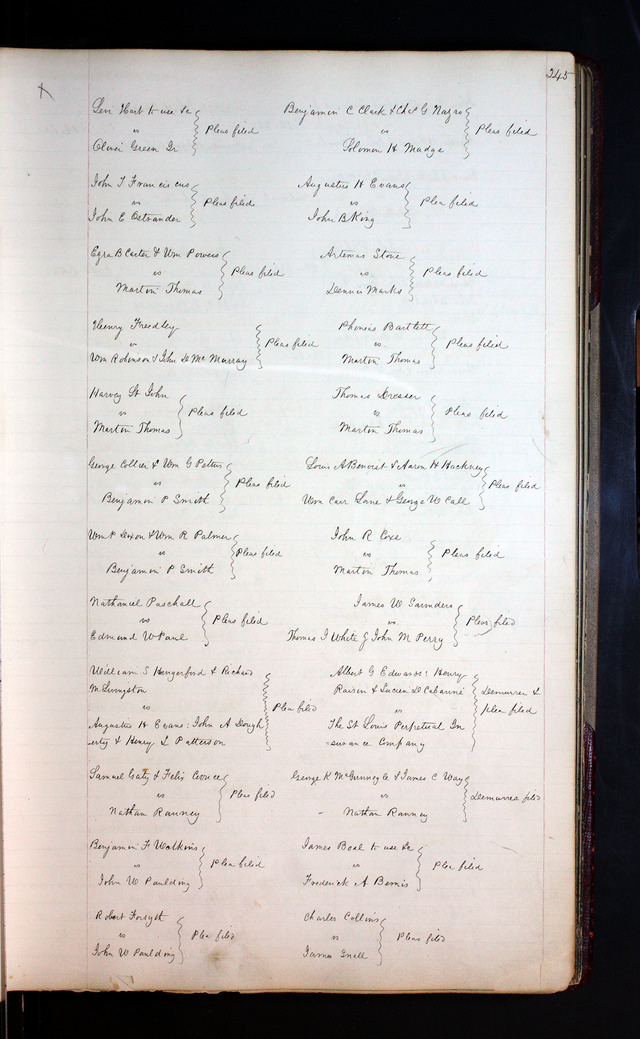 245
Levi Hart to use &c
vs
Oliver Green Jr
Pleas filed
Benjamin C Clark & Chas G Nazro
vs
Solomon H Mudge
Pleas filed
John T Francis cus
vs
John E Ostrander
Pleas filed
Augustus H Evans
vs
John B King
Plea filed
Ezra B Carter & Wm Powers
vs
Marton Thomas
Pleas filed
Artemas Stone
vs
Dennis Marks
Pleas filed
Henry Freedley
vs
Wm Robinson & John D Mc Murray
Pleas filed
Bartlett
vs
Marton Thomas
Pleas filed
Harvey St John
vs
Marton Thomas
Pleas filed
Thomas Dresser
vs
Marton Thomas
Pleas filed
George Collier & Wm G Pettus
vs
Benjamin P Smith
Pleas filed
Louis A Benoist & Aaron H Hackney
vs
Wm Carr Lane & George W Call
Pleas filed
Wm P Dixon & Wm R Palmer
vs
Benjamin P Smith
Pleas filed
John R Coxe
vs
Marton Thomas
Pleas filed
Nathaniel Paschall
vs
Edmund W Paul
Pleas filed
James W Saunders
vs
Thomas J White & John M Perry
Pleas filed
William S Hungerford & Richard
M Livingston
vs
Augustus H Evans: John A Dough
erty & Henry L Patterson
Plea filed
Albert G Edwards: Henry
Raisin & Lucien D Cabanné
vs
The St Louis Perpetual In
-surance Company
Demurrer &
plea filed
Samuel Gaty & Felix Coonce
vs
Nathan Ranney
Plea filed
George K McGunnegle & James C Way
vs
Nathan Ranney
Demurrer filed
Benjamin F Watkins
vs
John W Paulding
Plea filed
James Beal to use &c
vs
Frederick A Bemis
Plea filed
Robert Forsyth
vs
John W Paulding
Plea filed
Charles Collins
vs
James Snell
Pleas filed